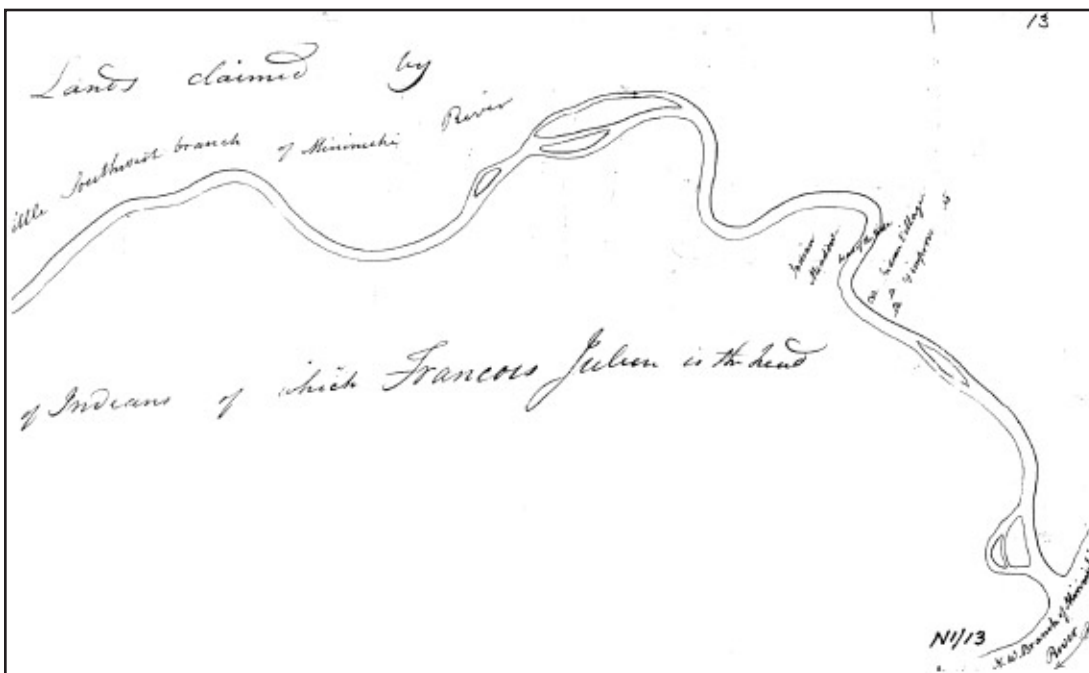 13
Lands claimed by
ittle Southwest branch of Mirimichi River
Indian
Meadow
Indian Village
of Indians of which Francois Julien is the head
N1/13
N.W. Branch of Mirimichi
River